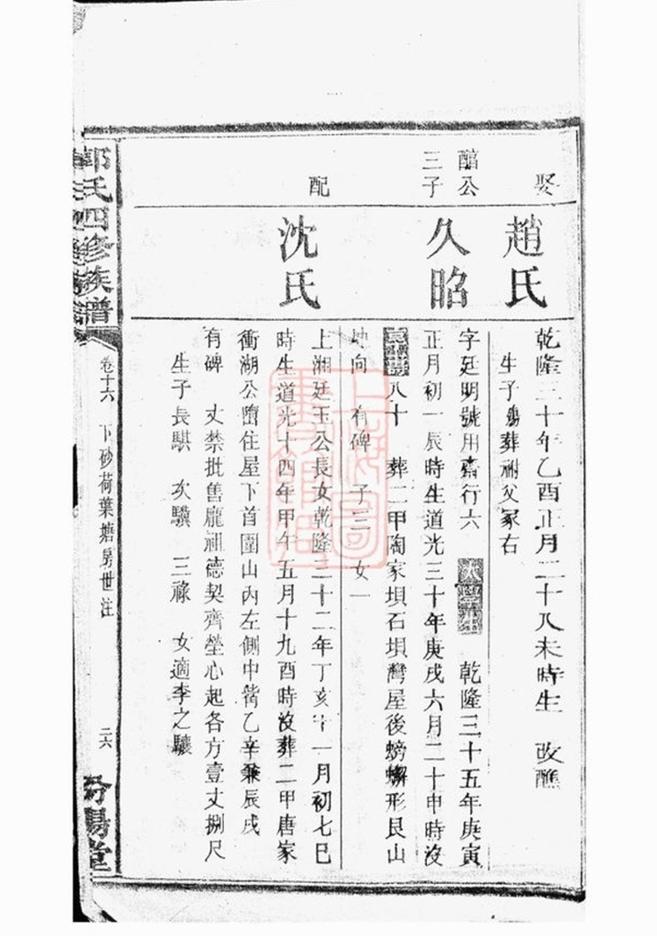 娶
趙氏
乾隆三十年乙酉正月二十八未時生 改醮
生子殤葬祔父冢右
醅公
三子
久昭
字廷明號用齋行六 乾隆三十五年庚寅
正月初一辰時生道光三十年庚戌六月二十申時沒
八十 葬二甲陶家垻石垻灣屋後螃蠏形艮山
坤向 有碑 子三 女一
配
沈氏
上湘廷玉公長女乾隆三十二年丁亥十一月初七巳
時生道光十四年甲午五月十九酉時沒葬二甲唐家
衝湖公隮住屋下首圍山內左側中嘴乙辛兼辰戌
有碑 丈禁批舊龎祖德契齊塋心起各方壹丈捌尺
生子長騏 次驥 三祿 女適李之驤
郭氏四修族譜
卷十六 下砂荷葉塘房世注
二六
汾陽堂